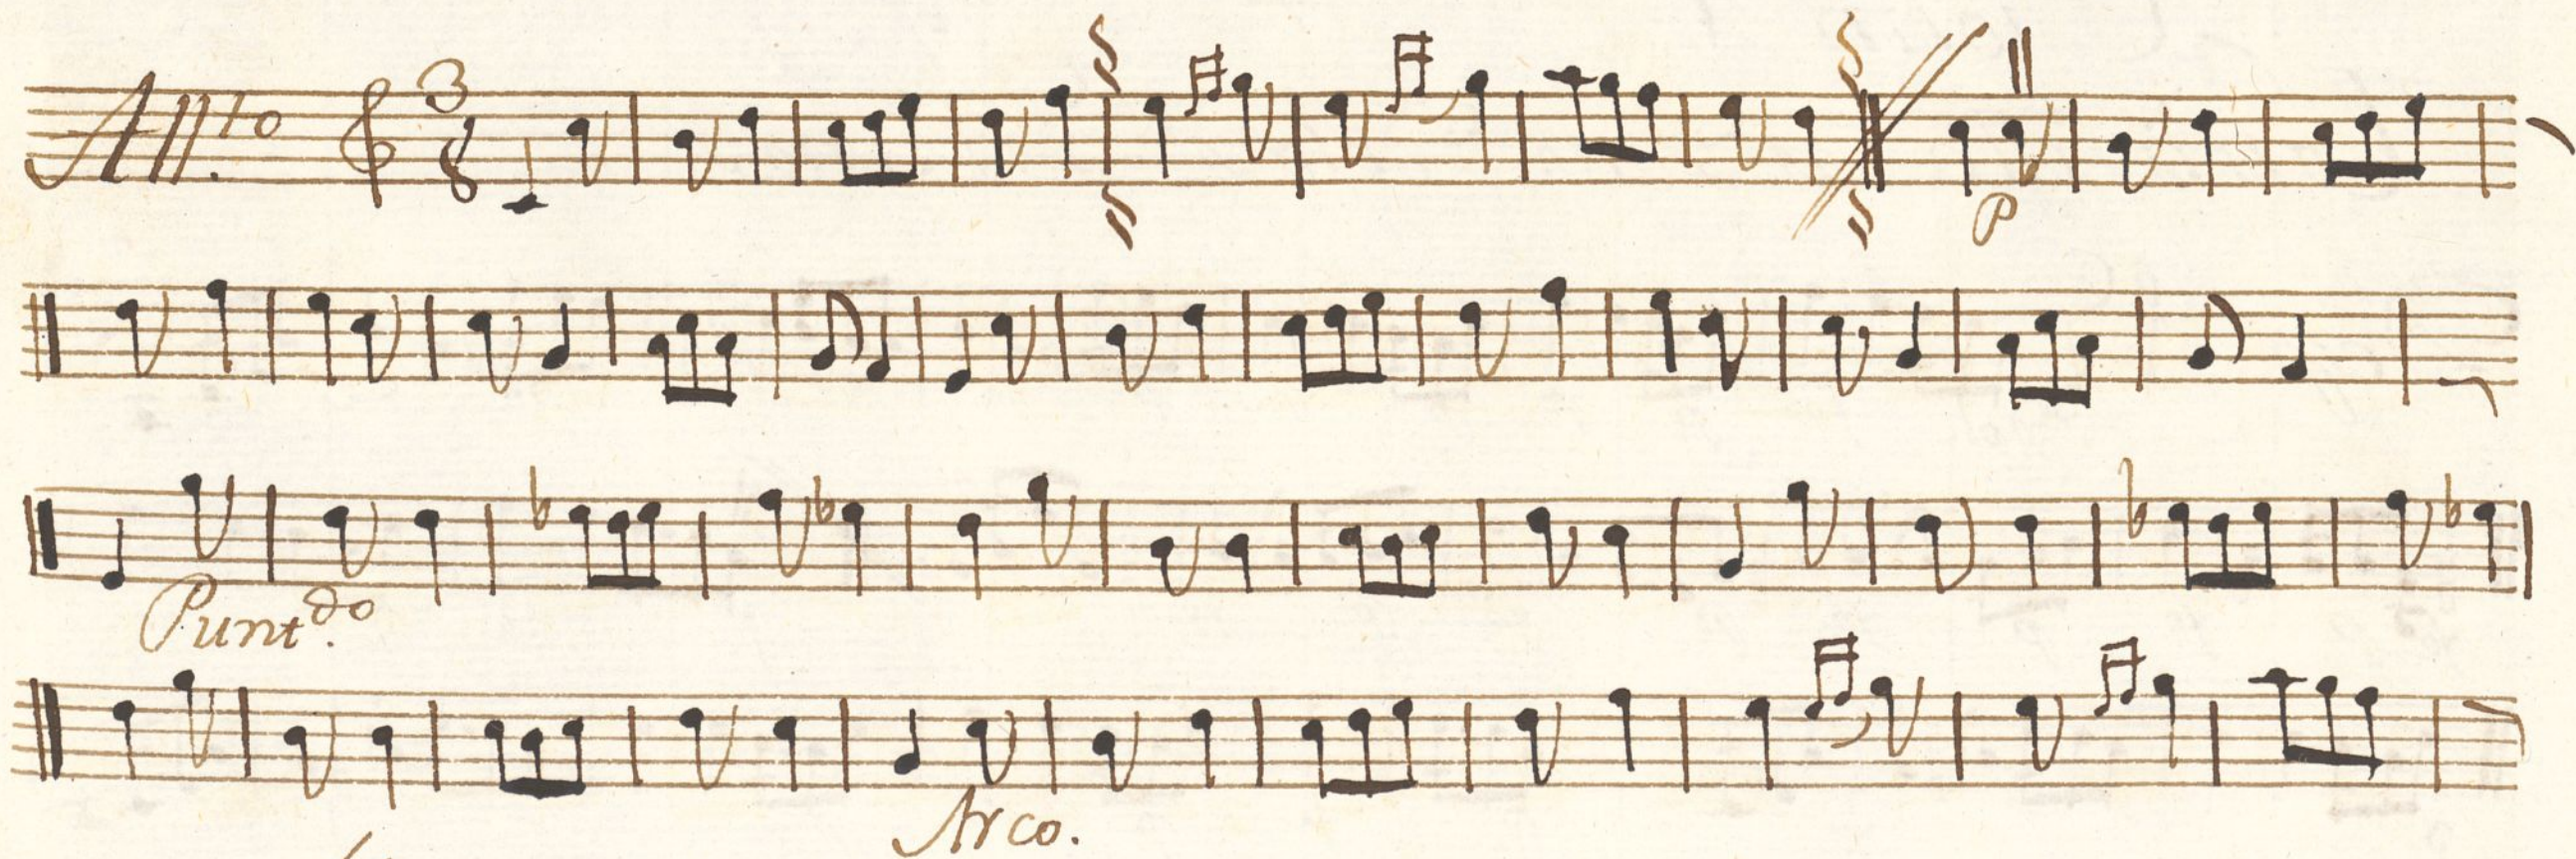 All.to 3/8
P
Punt.do
Arco.